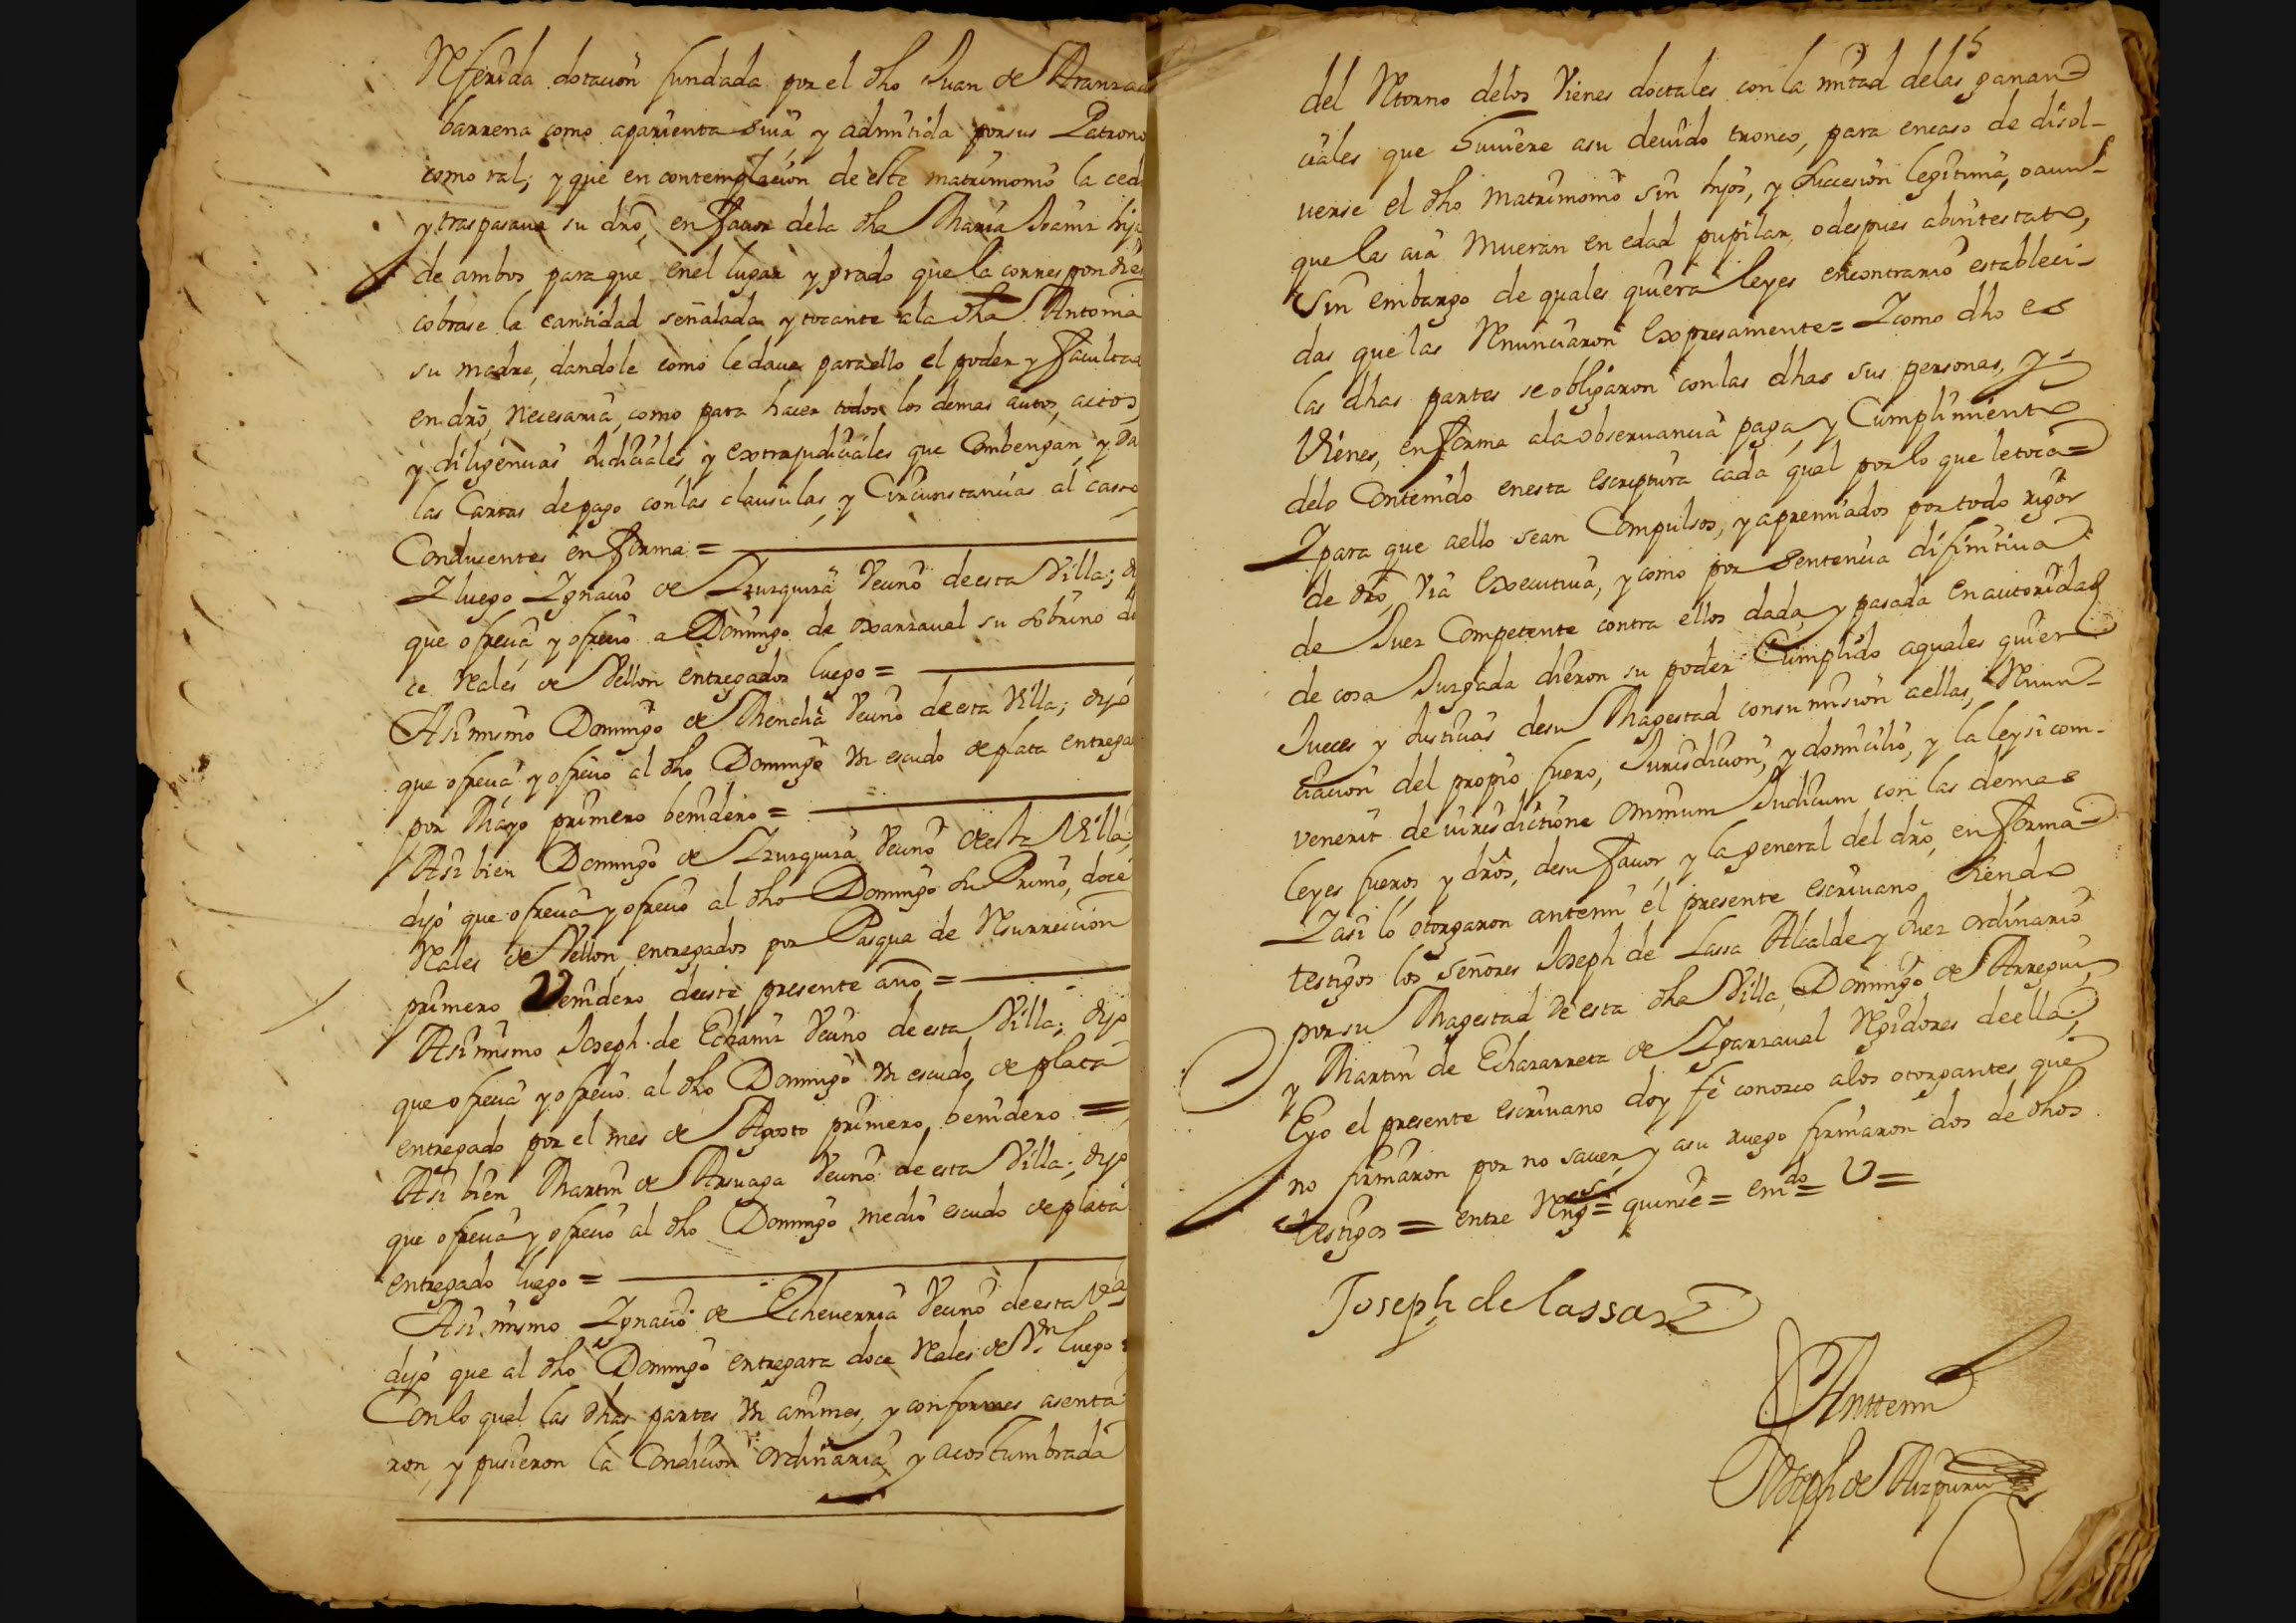 Referida dotacion fundada por el dho Juan de Aranza
barrena como aparienta suia, y admitida por sus Patrono
como tal; y que en contemplacion de este matrimonio la ced
y traspasava su dro, en favor dela dha Maria hija
de ambos para que enel lugar y grado que la correspondie
cobrase la cantidad señalada y tocante ala dha Antonia
su madre, dandole como le dava para ello el poder y facultad
en dro, necesaria, como para hacer todos los demas autos, actos,
y diligencias Judiciales y extrajudiciales que combengan, y da
las Cartas de pago con las clausulas, y Circunstancias al casso
Conducentes en forma =
Y luego Ygnacio de Yzurquiza Vecino de esta Villa; d
que ofrecia, y ofrecio a Domingo de oxanzaual su sobrino do
ce Reales de Vellon entregados luego =
Asimismo Domingo de Mendia Vecino de esta Villa; dijo
que ofrecia y ofrecio al dho Domingo un escudo de plata entrega
por Mayo primero benidero =
Asi bien Domingo de Yzurquiza Vecino de esta Villa,
dijo que ofrecia y ofrecio al dho Domingo su Primo, doce
Reales de Vellon, entregados por Pasqua de Resurreccion
primero Venidero, deeste presente año =
Asimismo Joseph de Echaniz Vecino de esta Villa; dijo
que ofrecia y ofrecio al dho Domingo un escudo, de plata
entregado por el mes de Agosto primero, benidero =
Asi bien Martin de Arsuaga Vecino de esta Villa; dijo
que ofrecia y ofrecio al dho Domingo medio escudo de plata
entregado luego =
Asi mismo Ygnacio de Echeverria Vecino de esta Va
dijo que al dho Domingo entregara doce Reales de Vn luego =
Con lo qual las dhas partes Un animes, y conformes asenta
ron, y pusieron la Condicion Ordinaria, y acostumbrada
5
del Retorno delos Vienes doctales con la mitad delas ganan
ciales que huviere asu devido tronco, para encaso de disol-
verse el dho Matrimonio sin hijos, y succesion legitima, o aun-
que las aia Mueran en edad pupilar, o despues abintestato,
Sin embargo de quales quiera leyes encontrario estableci-
das que las Renunciaron Expresamente = Y como dho es
las dhas partes se obligaron con las dhas sus personas, y
Vienes, en forma ala observancia paga, y Cumplimiento
delo Contenido enesta escriptura cada qual por lo que le toca =
Y para que aello sean Compulsos, y apremiados por todo rigor
de dro via Executiva, y como por Sentencia difinitiua
de Juez Competente contra ellos dada, y pasada en autoridad
de cosa Juzgada dieron su poder Cumplido aquales quier
Jueces y Justicias de su Magestad con sumision aellas, Renun-
ciacion del propio fuero, Jurisdicion, y domicilio, y la ley si com-
venerit de iurisdictione Omnium Judicum con las demas
leyes fueros, y dros, de su favor, y la general del dro, en forma
Y asi lo otorgaron antemi el presente escrivano, siendo
testigos los Señores Joseph de Lassa Alcalde y Juez ordinario
por su Magestad de esta dha Villa, Domingo de Arregui,
y Martin de Echazarreta de Ygarzaual Regidores de ella;
E yo el presente escrivano doy fe conozco alos otorgantes que
no firmaron por no saver, y asu ruego firmaron dos de dhos
testigos = entre Reng.s = quince = emdo = V =
Joseph de lassa
Anttemi
Joseph de Aizpuru